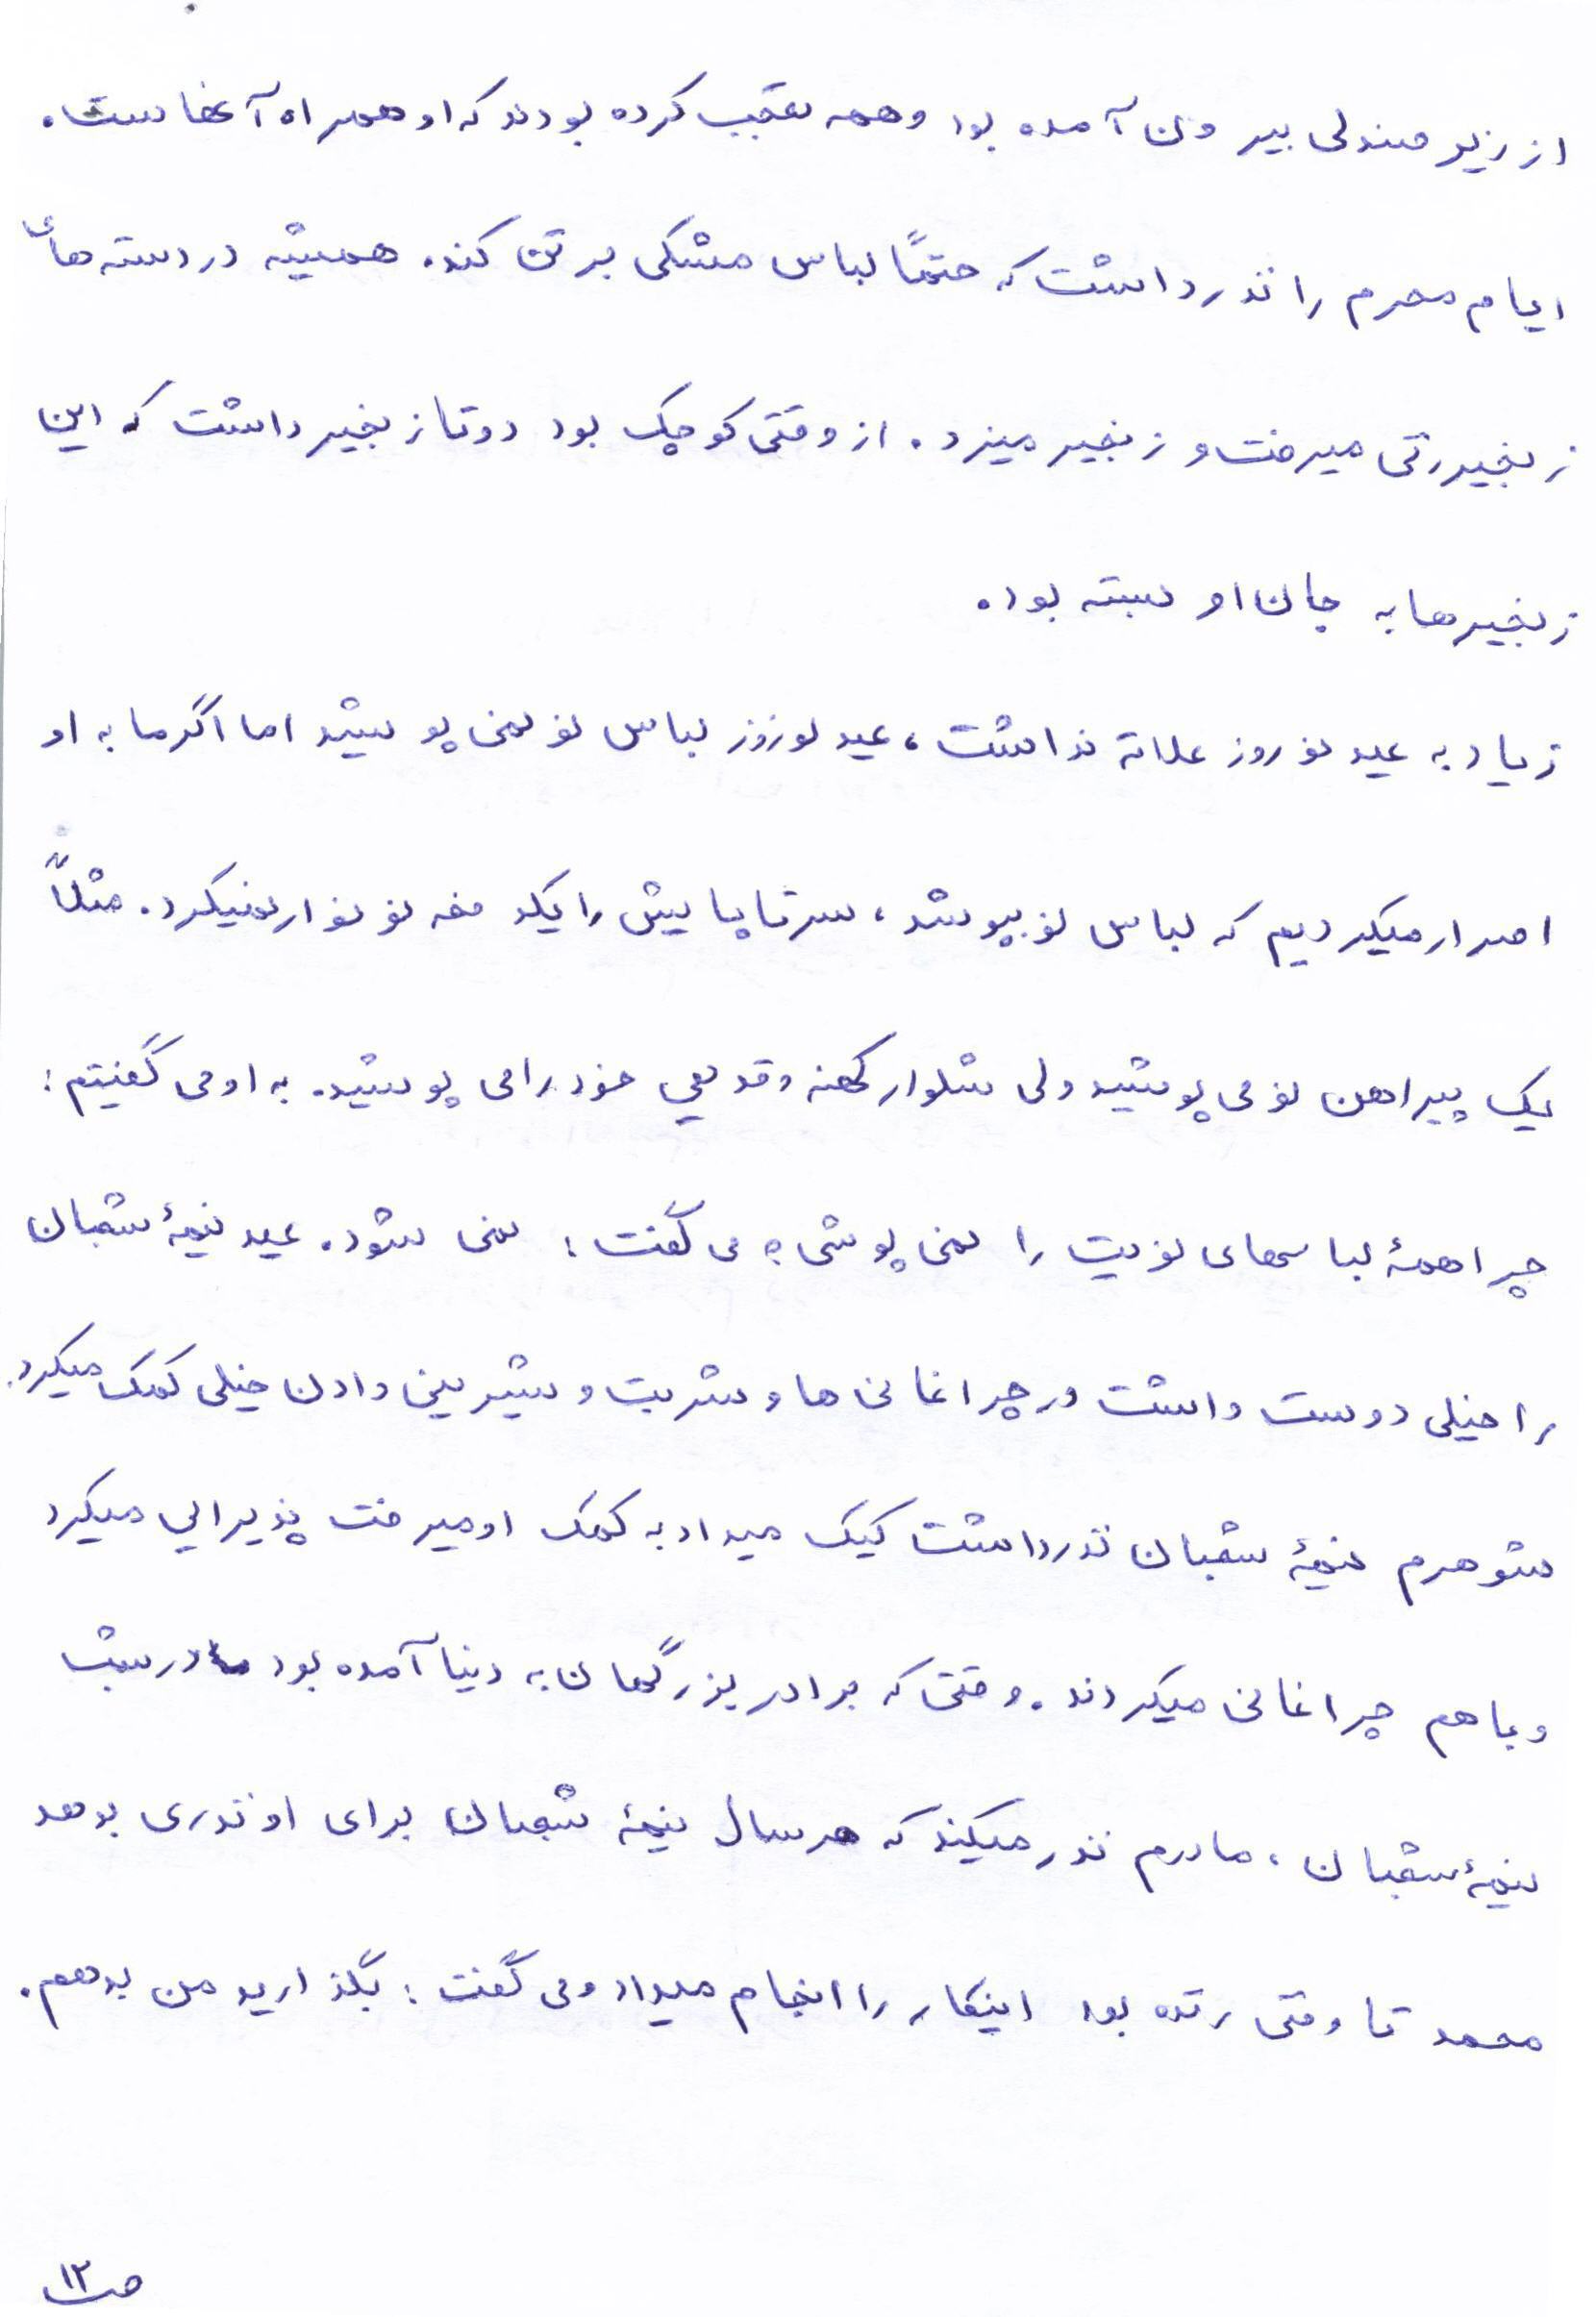 از زیر صندلی بیرون آمده بود و همه تعجب کرده بودند که او همراه آنهاست.
ایام محرم را نذر داشت که حتماً لباس مشکی بر تن کند. همیشه در دسته های
زنجیرزنی میرفت و زنجیر میزد. از وقتی کوچک بود دو تا زنجیر داشت که این
زنجیرها به جان او بسته بود.
زیاد به عید نوروز علاقه نداشت، عید نوروز لباس نو نمی پوشید اما اگر ما به او
اصرار میکردیم که لباس نو بپوشد، سرتاپایش را یکدفعه نو نوار نمیکرد. مثلاً
یک پیراهن نو می پوشید ولی شلوار کهنه و قدیمی خود را می پوشید. به او می گفتیم:
چرا همۀ لباسهای نویت را نمی پوشی؟ می گفت: نمی شود. عید نیمۀ شعبان
را خیلی دوست داشت در چراغانی ها و شربت و شیرینی دادن خیلی کمک میکرد.
شوهرم نیمۀ شعبان نذر داشت کیک میداد به کمک او میرفت پذیرایی میکرد
و با هم چراغانی میکردند. وقتی که برادر بزرگمان به دنیا آمده بود در شب
نیمۀ شعبان، مادرم نذر میکند که هر سال نیمۀ شعبان برای او نذری بدهد
محمد تا وقتی زنده بود اینکار را انجام میداد و می گفت: بگذارید من بدهم.
ص ۱۲